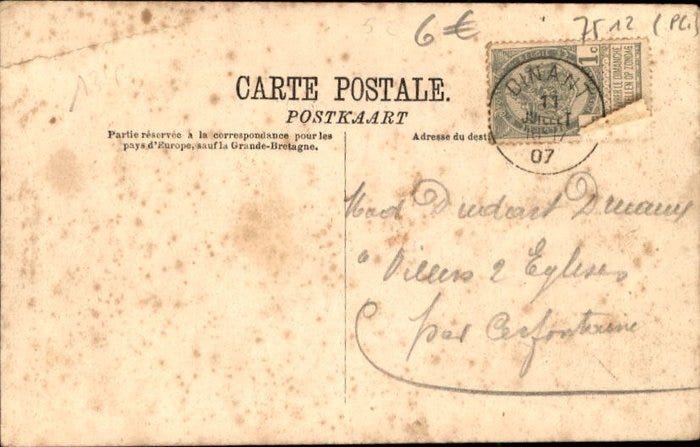 6 € 7512 (PCi)
CARTE POSTALE.
POSTKAART
Partie réservée à la correspondance pour les
pays d'Europe, sauf la Grande-Bretagne.
Adresse du desti
1c
DINANT
11
JUILLET
07
à Villers 2 Eglises
par Cerfontaine